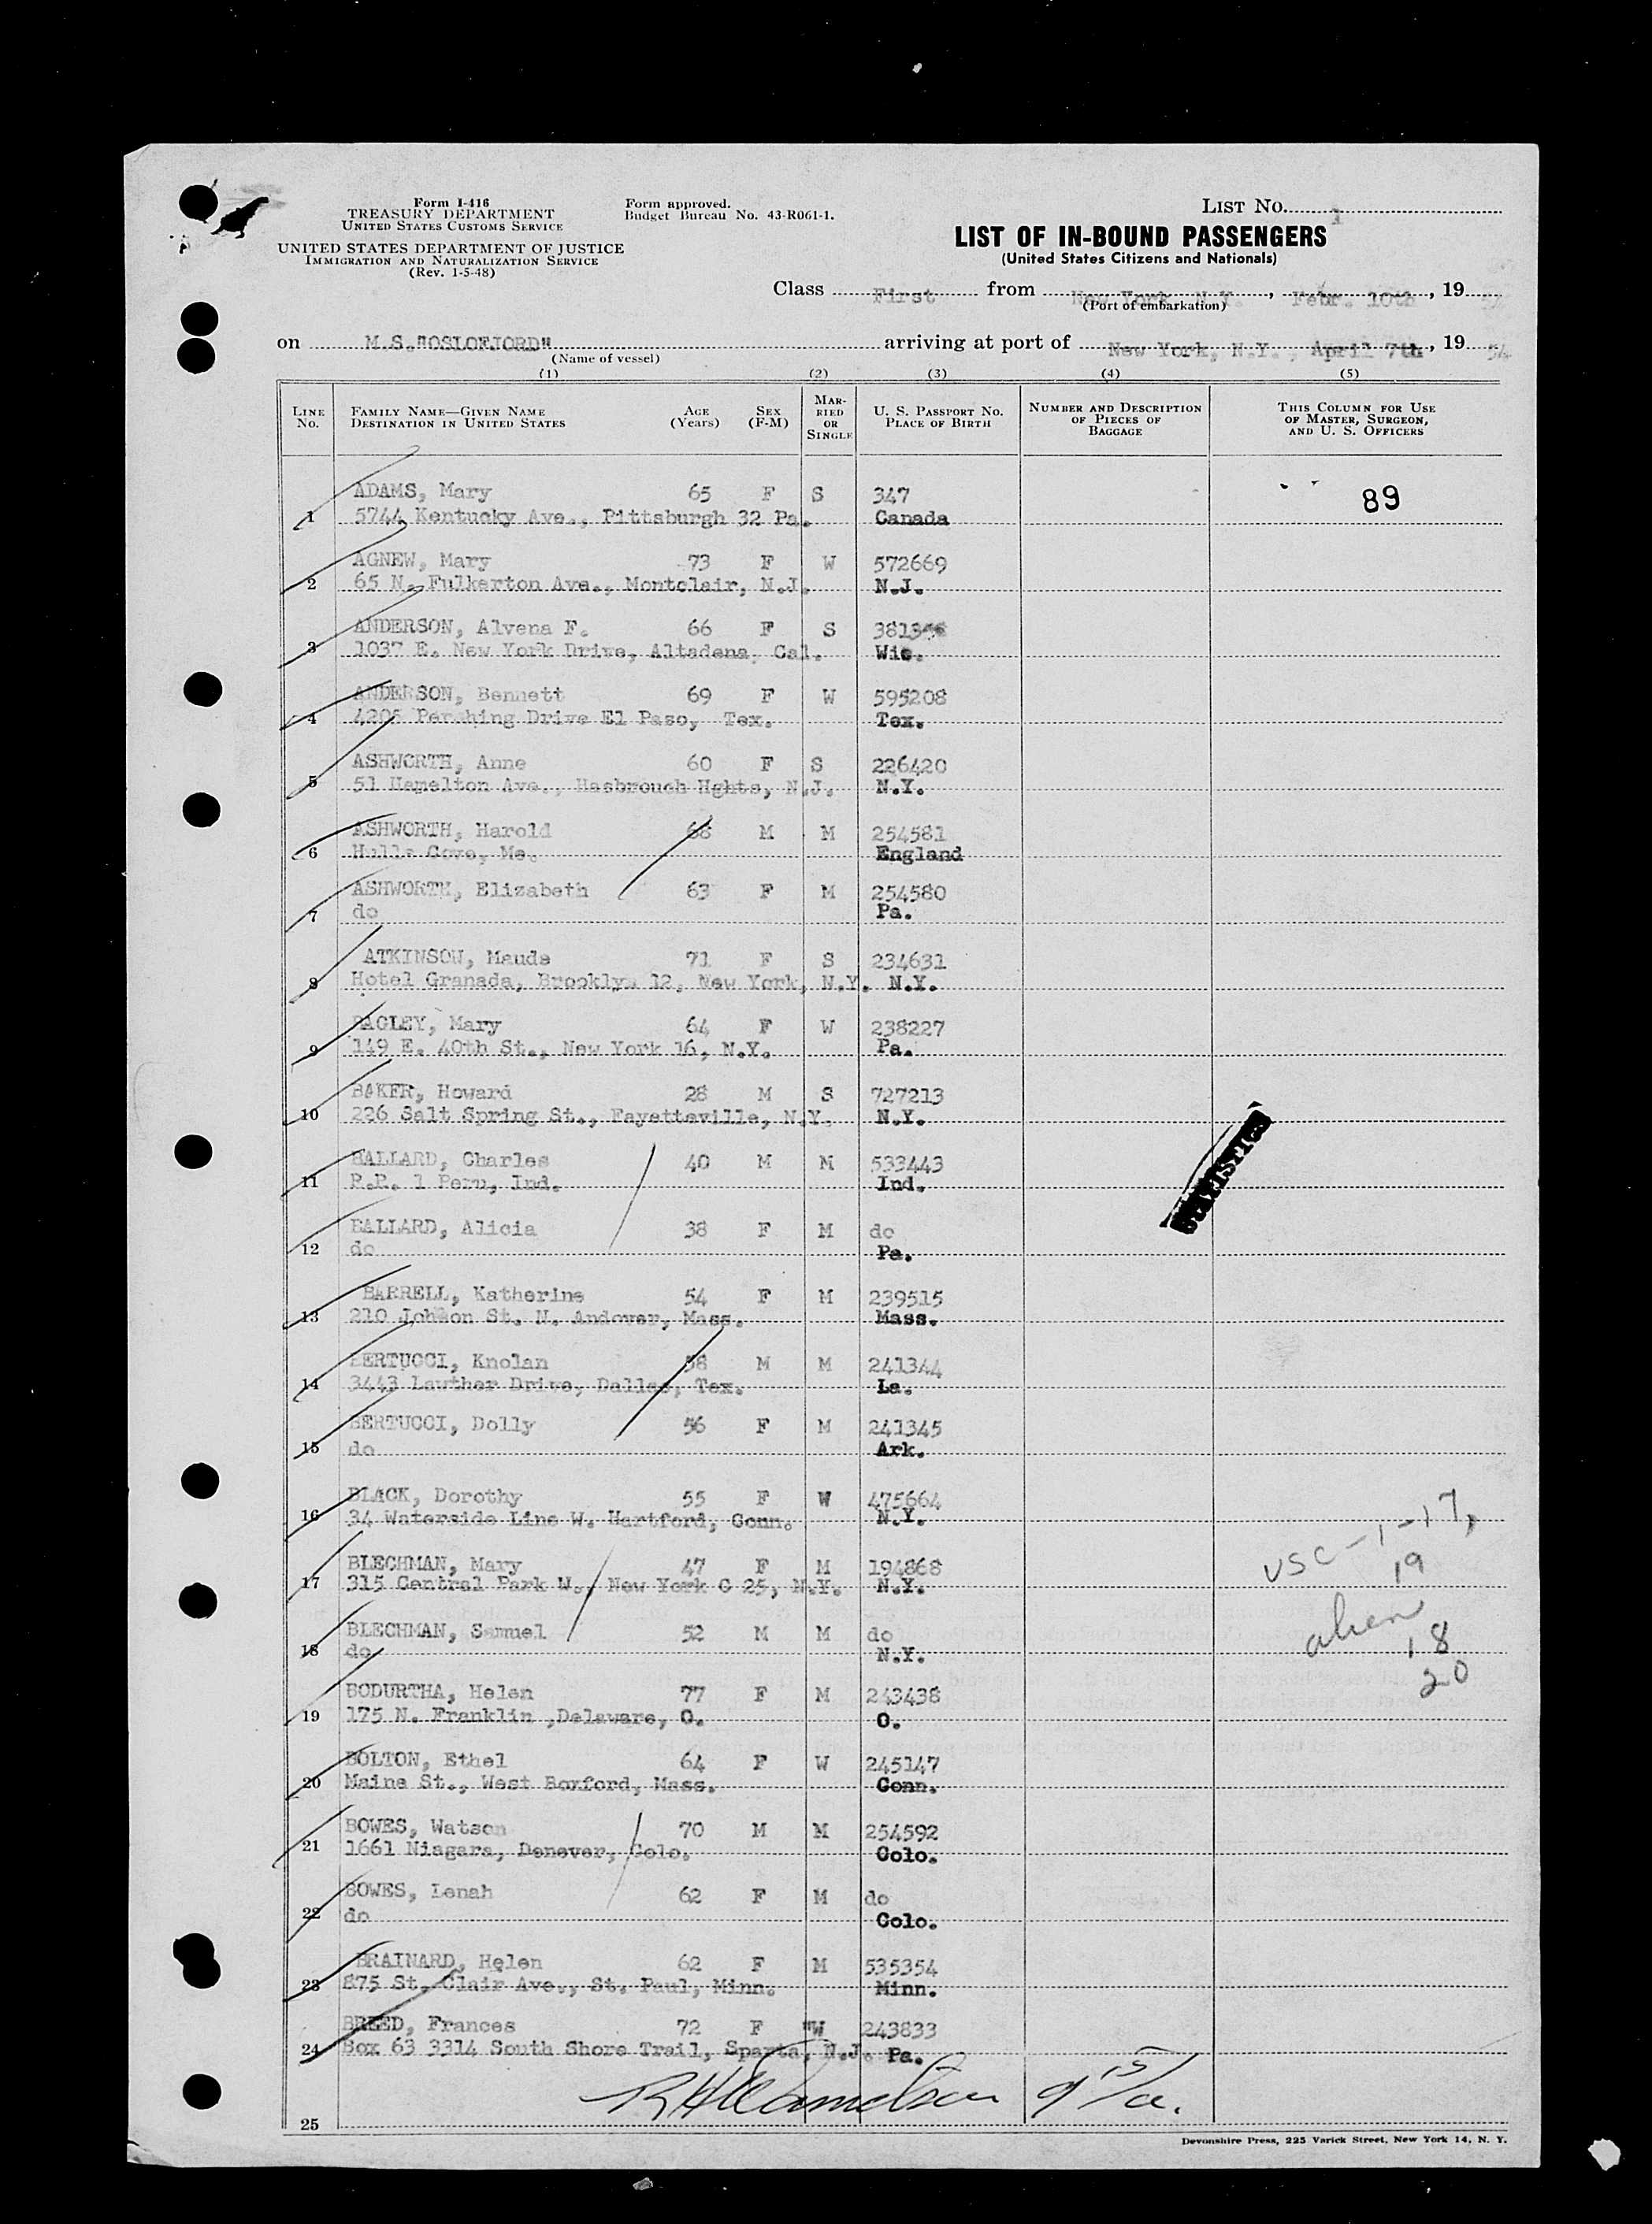 Form I-416
TREASURY DEPARTMENT
UNITED STATES CUSTOMS SERVICE
UNITED STATES DEPARTMENT OF JUSTICE
IMMIGRATION AND NATURALIZATION SERVICE
(Rev. 1-5-48)
Form approved.
Budget Bureau No. 43-R061-1.
LIST NO.
LIST OF IN-BOUND PASSENGERS
(United States Citizens and Nationals)
Class First from New York, N.Y., Febr. 10th, 19
(Port of embarkation)
on M.S."OSLOFJORD" arriving at port of New York, N.Y., April 7th, 19 54
(Name of vessel)
(1) (2) (3) (4) (5)
LINE NO. FAMILY NAME—GIVEN NAME DESTINATION IN UNITED STATES AGE (Years) SEX (F-M) MARRIED OR SINGLE U. S. PASSPORT NO. PLACE OF BIRTH NUMBER AND DESCRIPTION OF PIECES OF BAGGAGE THIS COLUMN FOR USE OF MASTER, SURGEON, AND U. S. OFFICERS
ADAMS, Mary 65 F S 347 89
1 5744 Kentucky Ave., Pittsburgh 32 Pa. Canada
AGNEW, Mary 73 F W 572669
2 65 N. Fulkerton Ave., Montclair, N.J. N.J.
ANDERSON, Alvena F. 66 F S
3 1037 E. New York Drive, Altadena, Cal. Wis.
ANDERSON, Bennett 69 F W 595208
4 4205 Pershing Drive El Paso, Tex. Tex.
ASHWORTH, Anne 60 F S 226420
5 51 Hamelton Ave., Hasbrouch Hghts, N.J. N.Y.
ASHWORTH, Harold 68 M M 254581
6 Hulls Cove, Me. England
ASHWORTH, Elizabeth 63 F M 254580
7 do Pa.
ATKINSON, Maude 71 F S 234631
8 Hotel Granada, Brooklyn 12, New York, N.Y. N.Y.
BAGLEY, Mary 64 F W 238227
9 149 E. 40th St., New York 16, N.Y. Pa.
BAKER, Howard 28 M S 727213
10 226 Salt Spring St., Fayetteville, N.Y. N.Y.
BALLARD, Charles 40 M M 533443
11 R.R. 1 Peru, Ind. Ind.
Statistics
BALLARD, Alicia 38 F M do
12 do Pa.
BARRELL, Katherine 54 F M 239515
13 210 Johnson St. N. Andover, Mass. Mass.
BERTUCCI, Knolan 58 M M 241344
14 3443 Lawther Drive, Dallas, Tex. La.
BERTUCCI, Dolly 56 F M 241345
15 do Ark.
BLACK, Dorothy 55 F W 475664
16 34 Waterside Line W. Hartford, Conn. N.Y.
USC-1-17,
BLECHMAN, Mary 47 F M 194868 19
17 315 Central Park W., New York C 25, N.Y. N.Y.
alien
BLECHMAN, Samuel 52 M M do 18
18 do N.Y.
20
BODURTHA, Helen 77 F M 243438
19 175 N. Franklin ,Delaware, O. O.
BOLTON, Ethel 64 F W 245147
20 Maine St., West Boxford, Mass. Conn.
BOWES, Watson 70 M M 254592
21 1661 Niagara, Denever, Colo. Colo.
BOWES, Lenah 62 F M do
22 do Colo.
BRAINARD, Helen 62 F M 535354
23 875 St. Clair Ave., St. Paul, Minn. Minn.
BREED, Frances 72 F W 243833
24 Box 63 3314 South Shore Trail, Sparta, N.J. Pa.
25
Devonshire Press, 225 Varick Street, New York 14, N. Y.